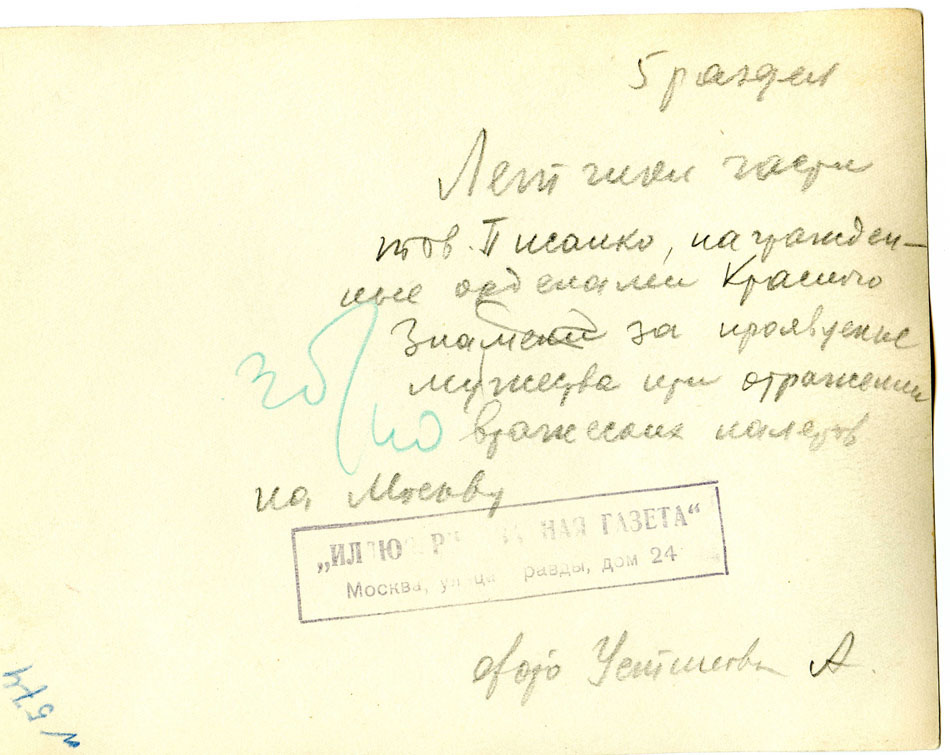 5 раздел
Летчики части
тов. Писанко, награжден-
ные орденами Красного
Знамени за проявление
мужества при отражении
вражеских налетов
на Москву
„ИЛЛЮ НАЯ ГАЗЕТА“
Москва, улица равды, дом 24
фото Устинова А.
574